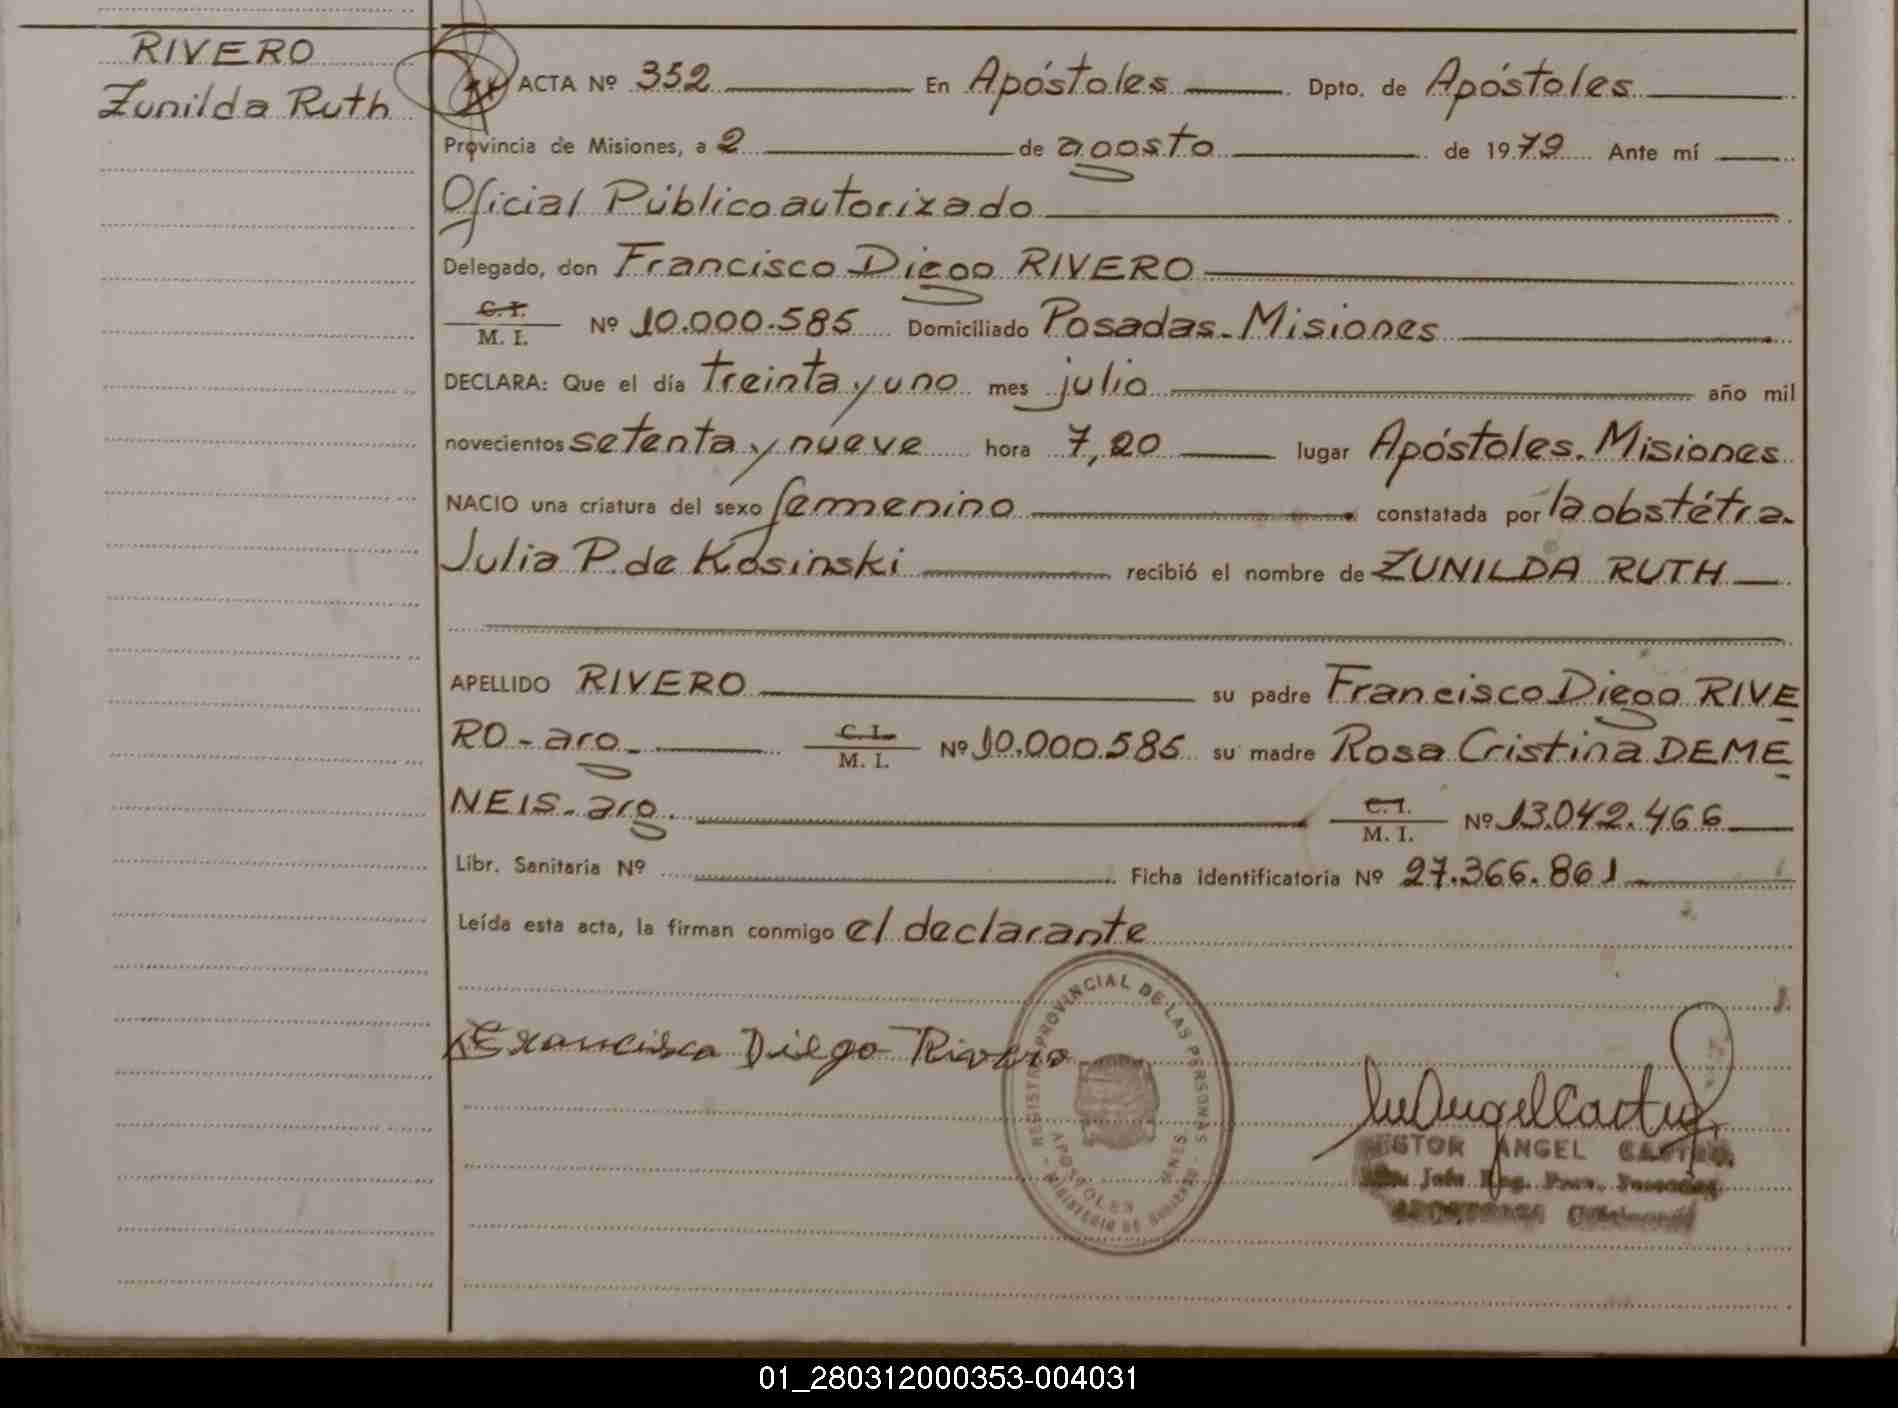 RIVERO
Zunilda Ruth
ACTA Nº 352 En Apóstoles Dpto. de Apóstoles
Provincia de Misiones, a 2 de agosto de 1979 Ante mí
Oficial Público autorizado
Delegado, don Francisco Diego RIVERO
C. I.
M. I. Nº 10.000.585 Domiciliado Posadas - Misiones
DECLARA: Que el día treinta y uno mes julio año mil
novecientos setenta y nueve hora 7,20 lugar Apóstoles. Misiones
NACIO una criatura del sexo femenino constatada por la obstétra.
Julia P. de Kosinski recibió el nombre de ZUNILDA RUTH
APELLIDO RIVERO su padre Francisco Diego RIVE
RO - arg. C. I. M. I. Nº 10.000.585 su madre Rosa Cristina DEME
NEIS - arg. C. I. M. I. Nº 13.042.466
Libr. Sanitaria Nº Ficha identificatoria Nº 27.366.861
Leída esta acta, la firman conmigo el declarante
Francisco Diego Rivero
REGISTRO PROVINCIAL DE LAS PERSONAS
APOSTOLES MNES
MINISTERIO DE GOBIERNO
NESTOR ANGEL CASTRO
01_280312000353-004031